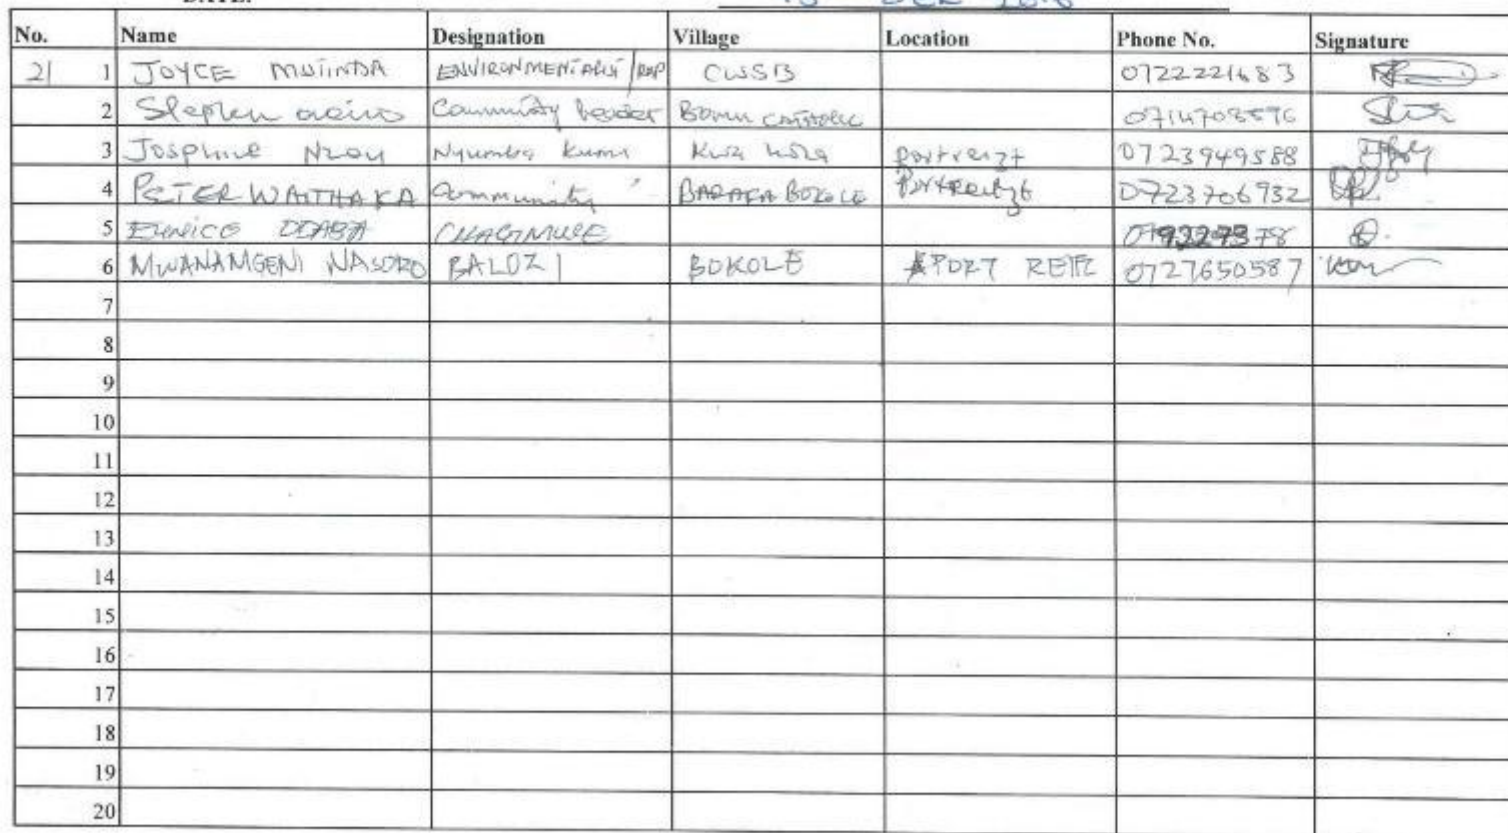 DATE:
DEC
No. Name Designation Village Location Phone No. Signature
21 1 JOYCE MUIINDA ENVIRONMENTALIST/RAP CWSB 0722221683
2 Stephen Community leader BOMU CATHOLIC
3 Josphine Nzou Nyumba Kumi Kwa hola portreizt 0723949588
4 PETER WAITHAKA Community BARAKA BOKOLE Portreitz 0723706932
5 EUNICE CHAGAMWE
6 MWANAMGENI NASORO BALOZI BOKOLE PORT REITZ 0727650587
7
8
9
10
11
12
13
14
15
16
17
18
19
20